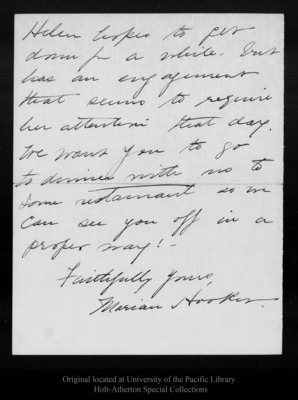 Helen hopes to get
down for a while. but
has an engagement
that seems to require
her attention that day.
We want you to go
to dinner with us to
some restaurant so we
can see you off in a
proper way! –
Faithfully Yours,
Marian Hooker.
Original located at University of the Pacific Library
Holt-Atherton Special Collections